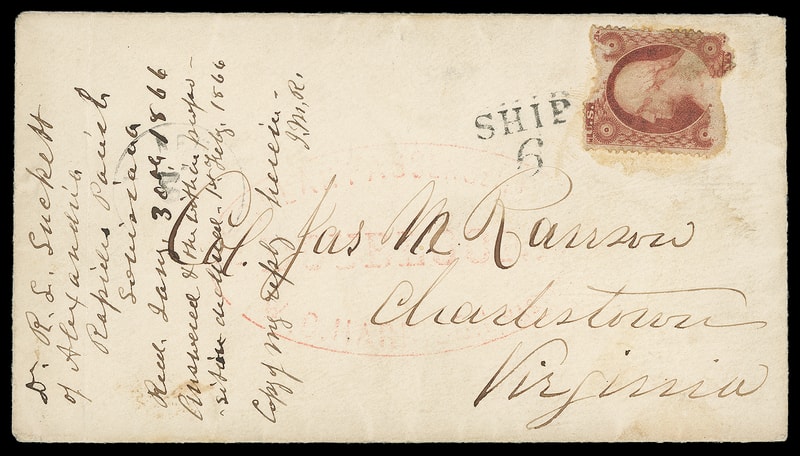 Dr. R. L. Luckett
of Alexandria
Rapides Parish
Louisiana
Recd. Jany. 30th, 1866
Answered & the within propo-
-sition declined - 1st Feby. 1866
Copy of my reply herein -
J. M. R.
SHIP
6
Jas M. Ranson
Charlestown
Virginia